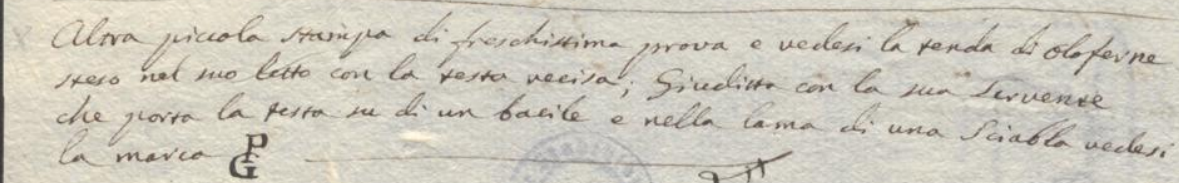 Altra piccola stampa di freschissima prova e vedesi la tenda di oloferne
steso nel suo letto con la testa recisa; Giuditta con la sua Servente
che porta la testa su di un bacile e nella lama di una Sciabla vedesi
la marca PG